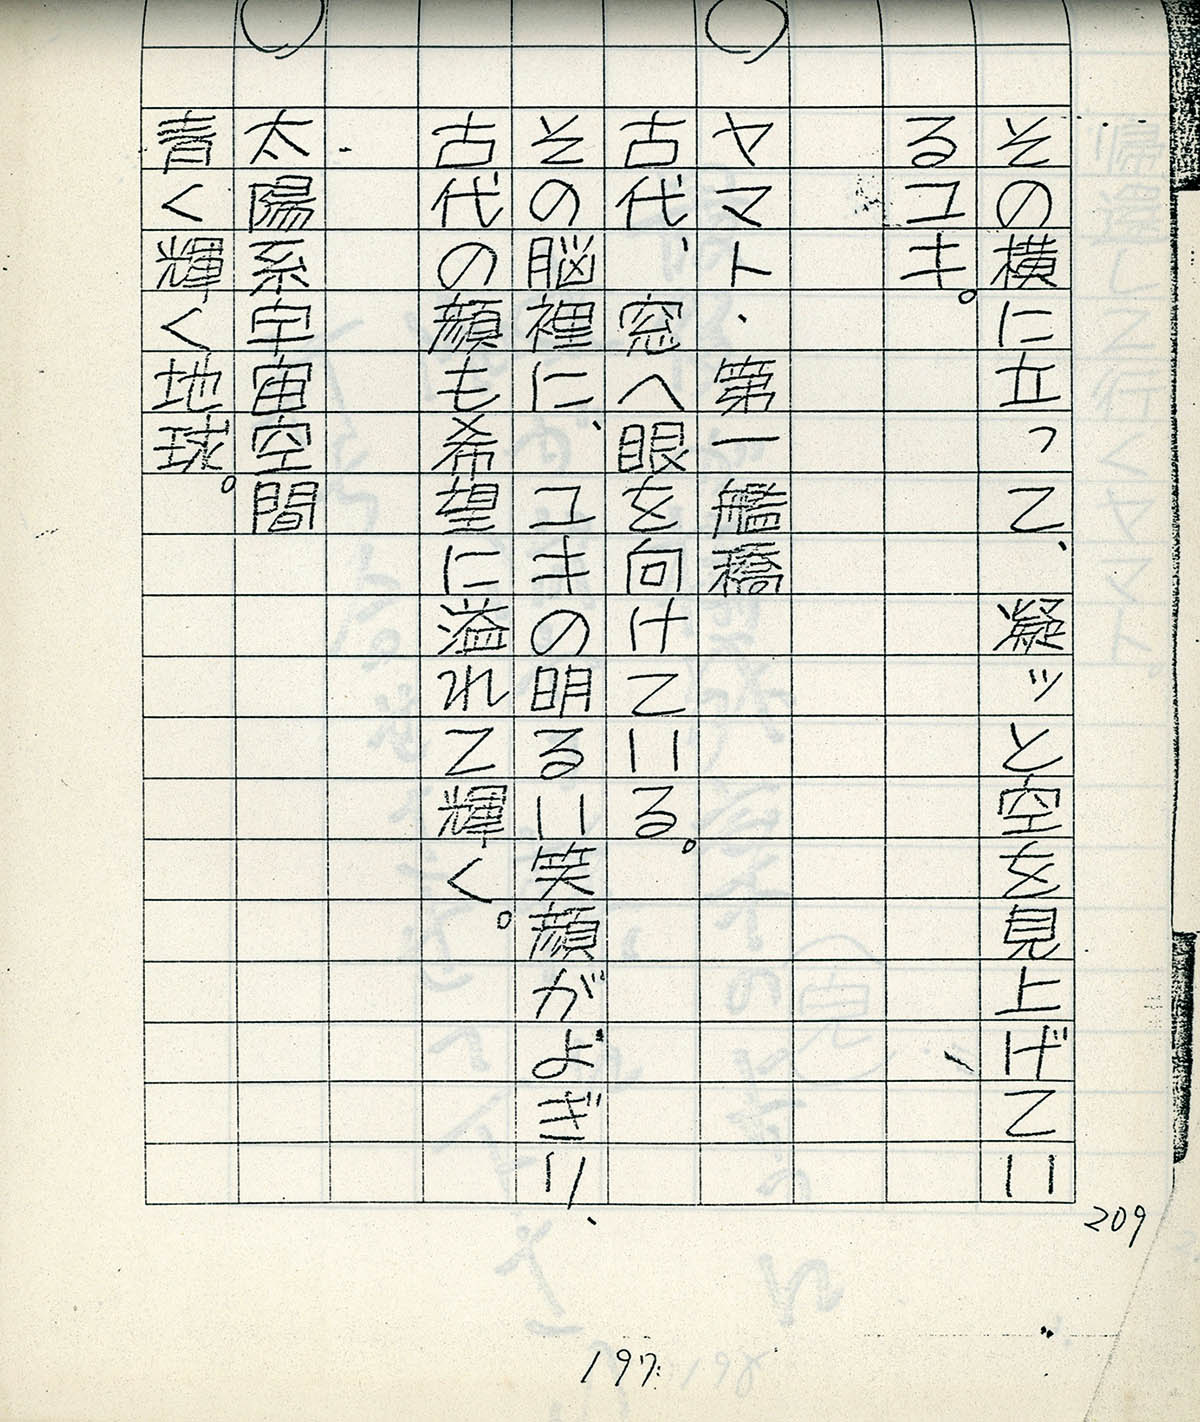 その横に立って、凝ッと空を見上げてい
るユキ。
○ヤマト・第一艦橋
古代、窓へ眼を向けている。
その脳裡に、ユキの明るい笑顔がよぎり、
古代の顔も希望に溢れて輝く。
○太陽系宇宙空間
青く輝く地球。
209
197